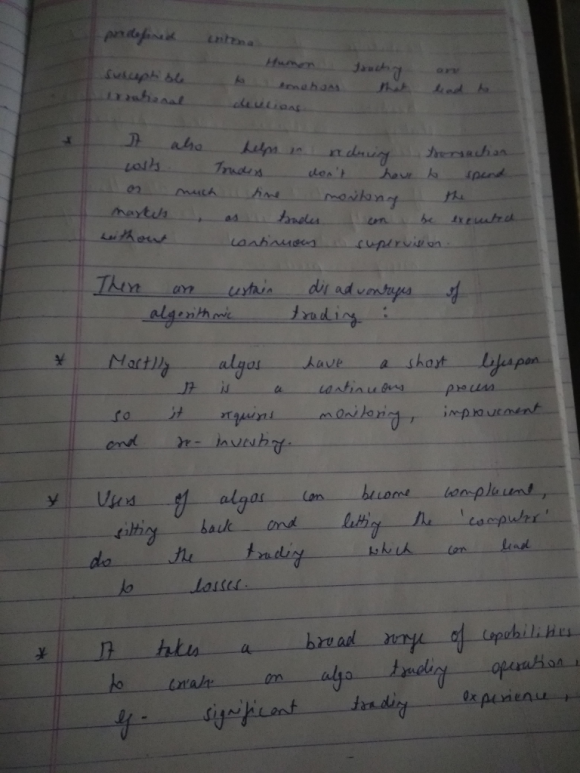 predefined criteria.
Human trading are
susceptible to emotions that lead to
irrational decisions
* It also helps in reducing transaction
costs. Traders don't have to spend
as much time monitoring the
markets, as trades can be executed
without continuous supervision.
There are certain disadvantages of
algorithmic trading :
* Mostly algos have a short lifespan
It is a continuous process
so it requires monitoring, improvement
and re-investing.
* Users of algos can become complacent,
sitting back and letting the 'computer'
do the trading which can lead
to losses.
* It takes a broad range of capabilities
to create an algo trading operation,
eg- significant trading experience,